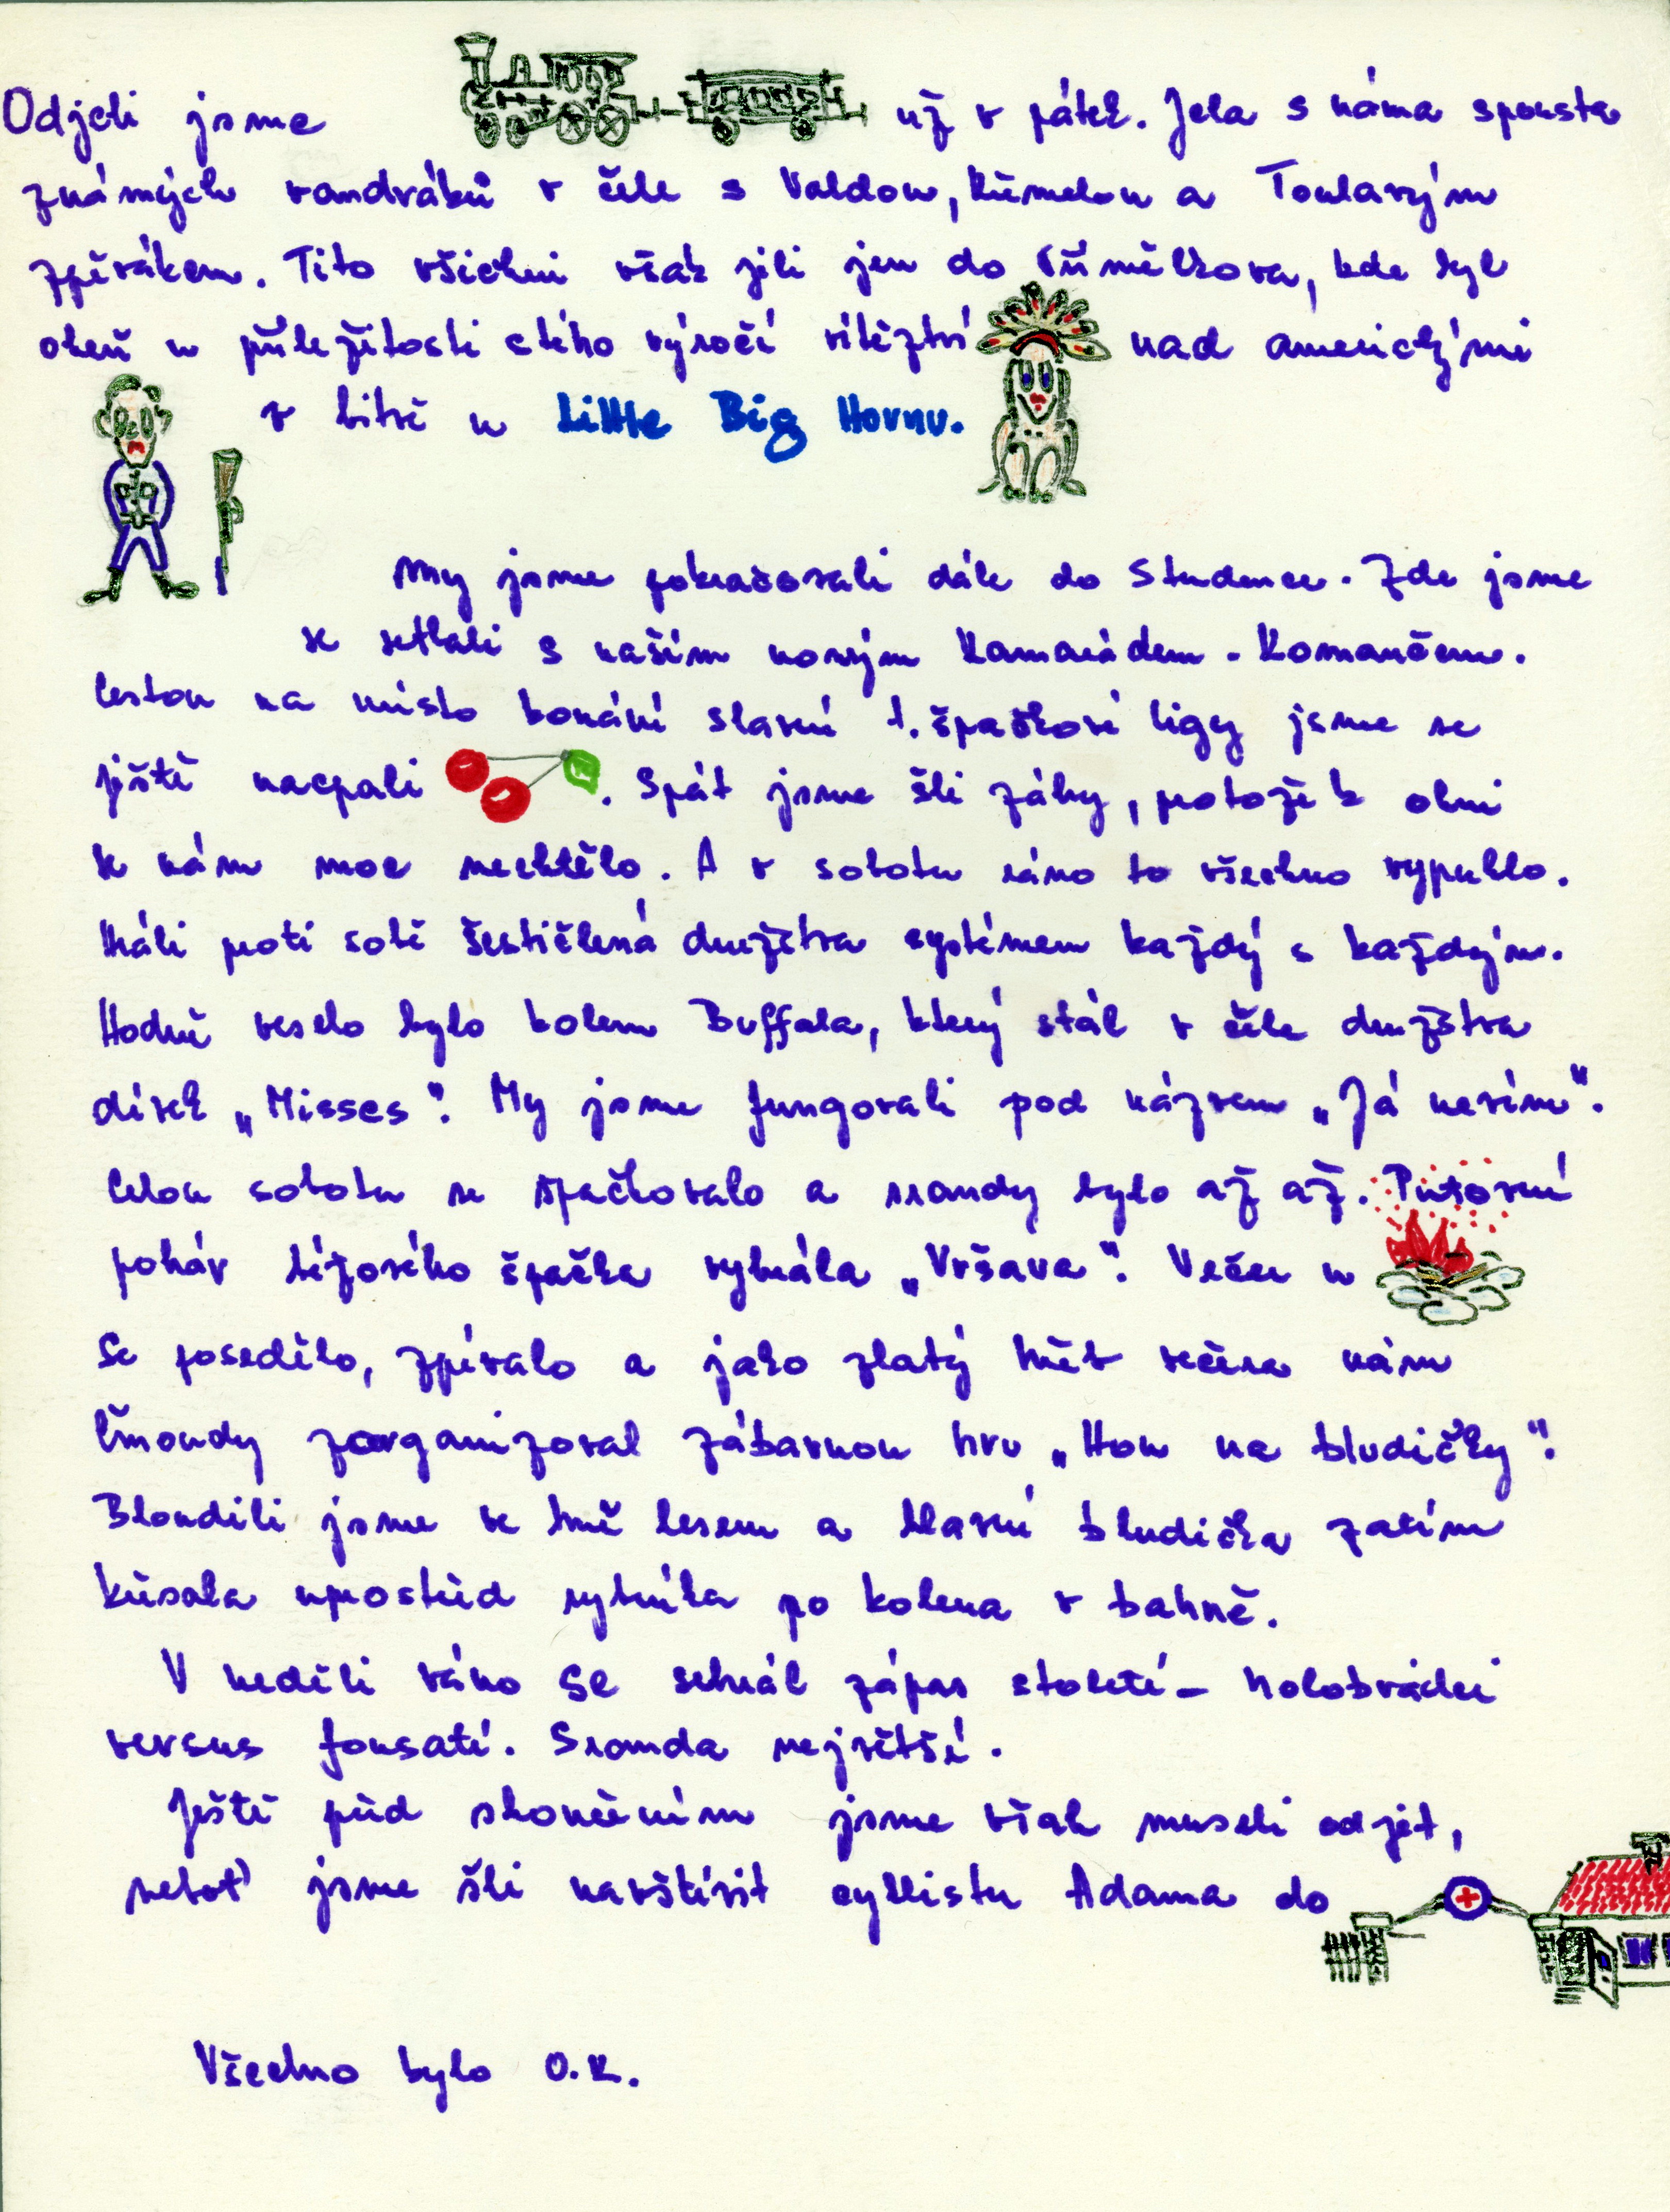 Odjeli jsme už v pátek. Jela s náma spousta
známých vandráků v čele s Valdou, Křemelou a Toulavým
zpěvákem. Tito všichni však jeli jen do kde byl
oheň u příležitosti stého výročí vítězství nad americkými
v bitvě u Little Big Hornu.
My jsme pokračovali dále do Studence. Zde jsme
se setkali s naším novým Kamarádem - Komančem.
Cestou na místo konání slavné 1. špačkové ligy jsme se
ještě nacpali . Spát jsme šli záhy, protože k ohni
se nám moc nechtělo. A v sobotu ráno to všechno vypuklo.
Hráli proti sobě šestičlená družstva systémem každý s každým.
Hodně veselo bylo kolem Buffala, který stál v čele družstva
dívek „Misses". My jsme fungovali pod názvem „Já nevím".
Celou sobotu se špačkovalo a srandy bylo až až. Putovní
pohár špačka vyhrála „Vršava". Večer u
se posedělo, zpívalo a jako zlatý hřeb večera nám
Čmoudy zorganizoval zábavnou hru „Hon na bludičky".
Bloudili jsme ve tmě lesem a hlavní bludička zatím
křísala uprostřed rybníka po kolena v bahně.
V neděli ráno se sehrál zápas století - holobrádci
versus fousatí. Sranda největší.
Ještě před skončením jsme však museli odjet,
neboť jsme šli navštívit cyklistu Adama do
Všechno bylo O.K.